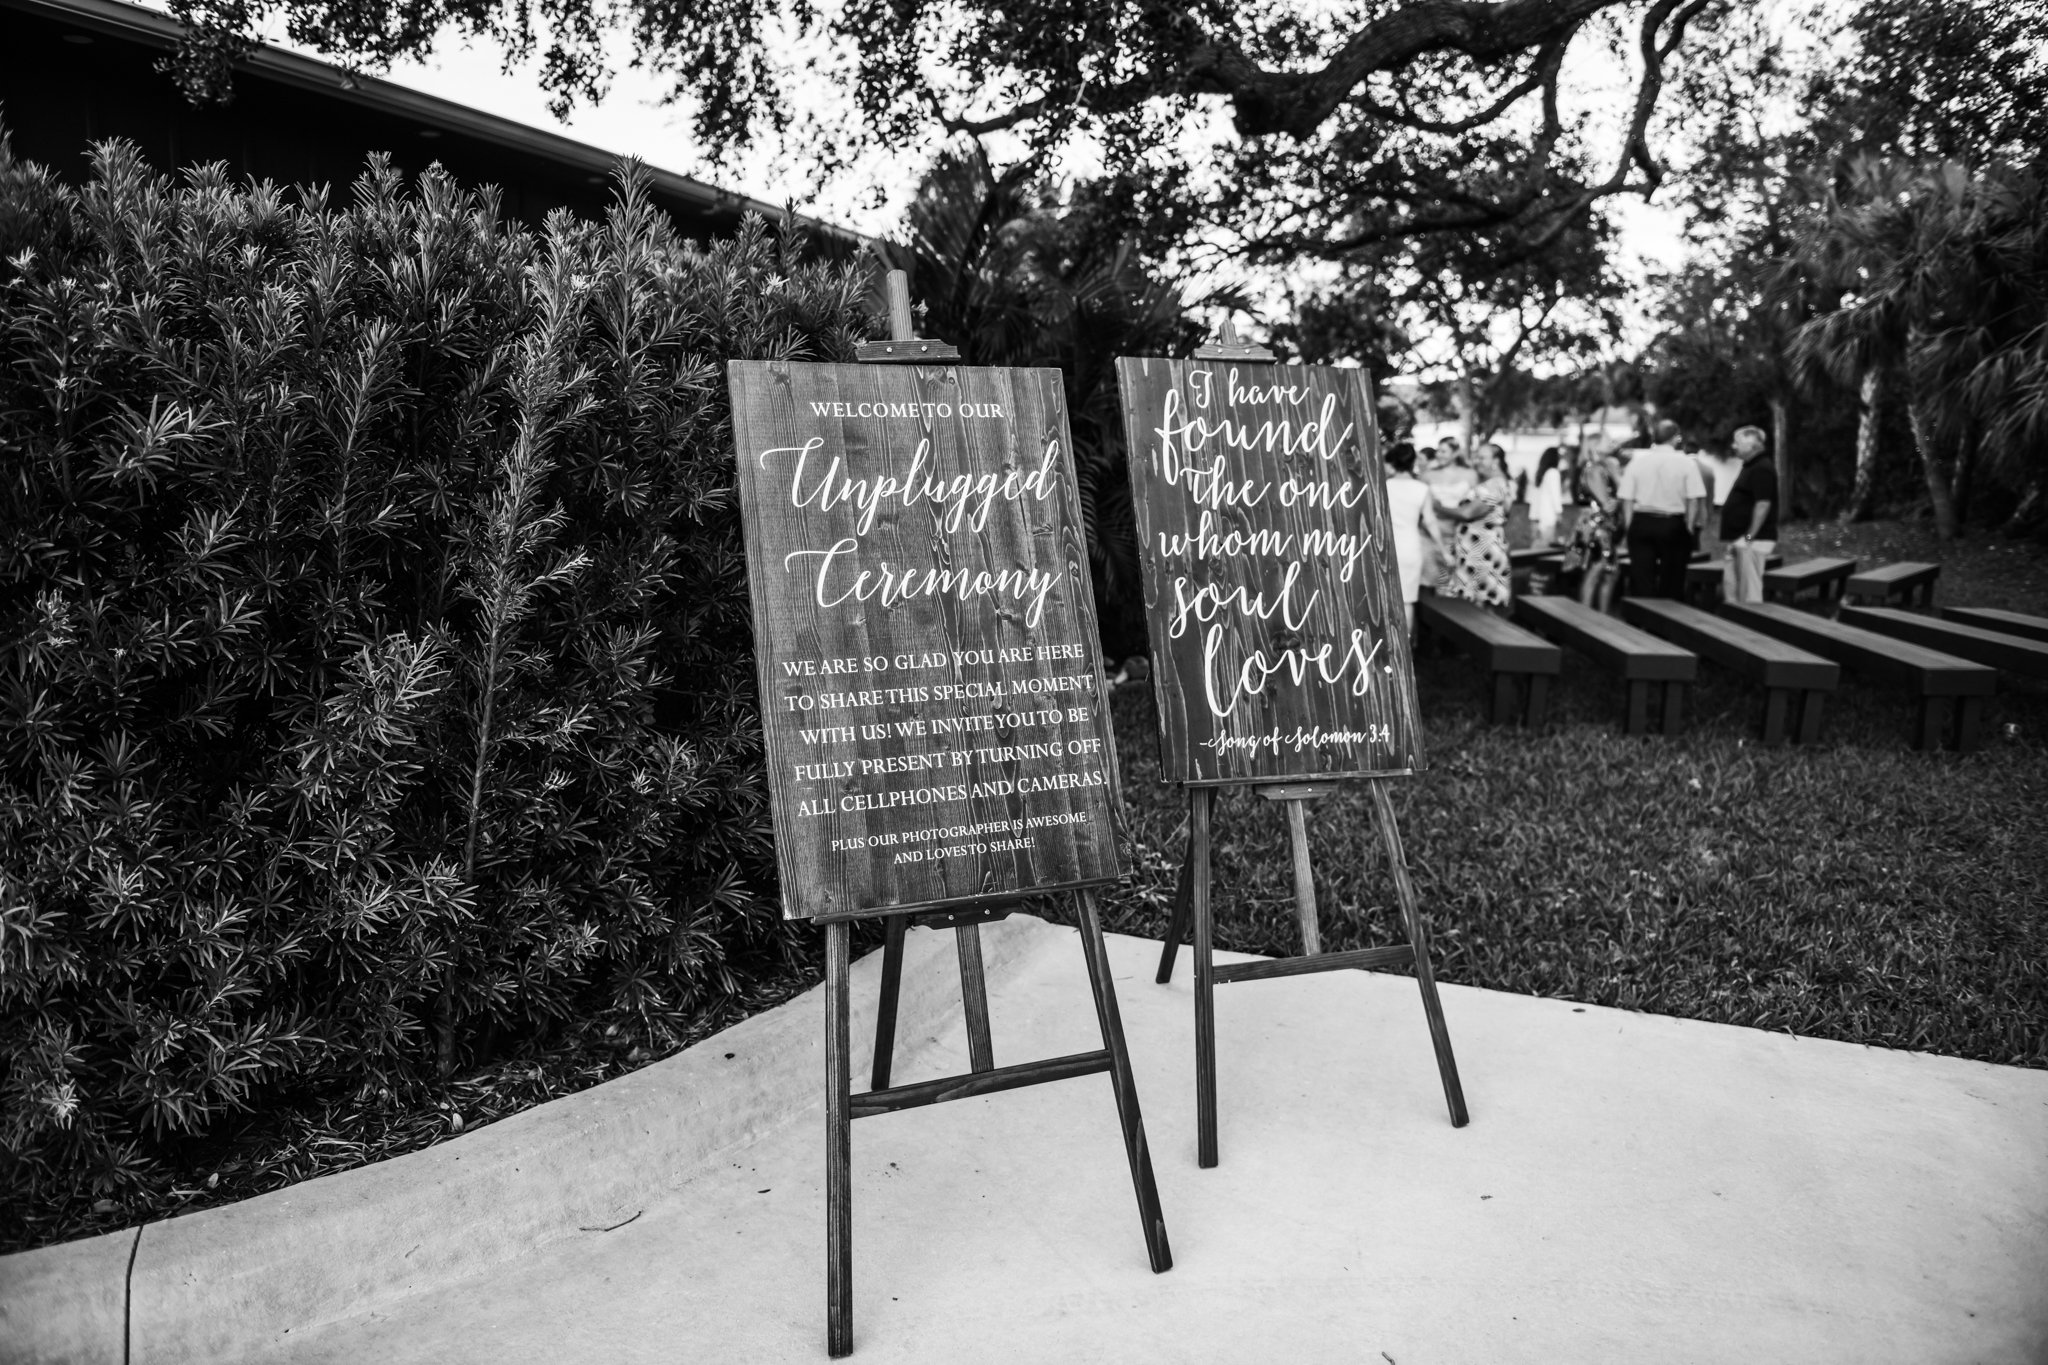 WELCOME TO OUR
Unplugged
Ceremony
WE ARE SO GLAD YOU ARE HERE
TO SHARE THIS SPECIAL MOMENT
WITH US! WE INVITE YOU TO BE
FULLY PRESENT BY TURNING OFF
ALL CELLPHONES AND CAMERAS.
PLUS OUR PHOTOGRAPHER IS AWESOME
AND LOVES TO SHARE!
I have
found
the one
whom my
soul
loves.
-Song of Solomon 3:4